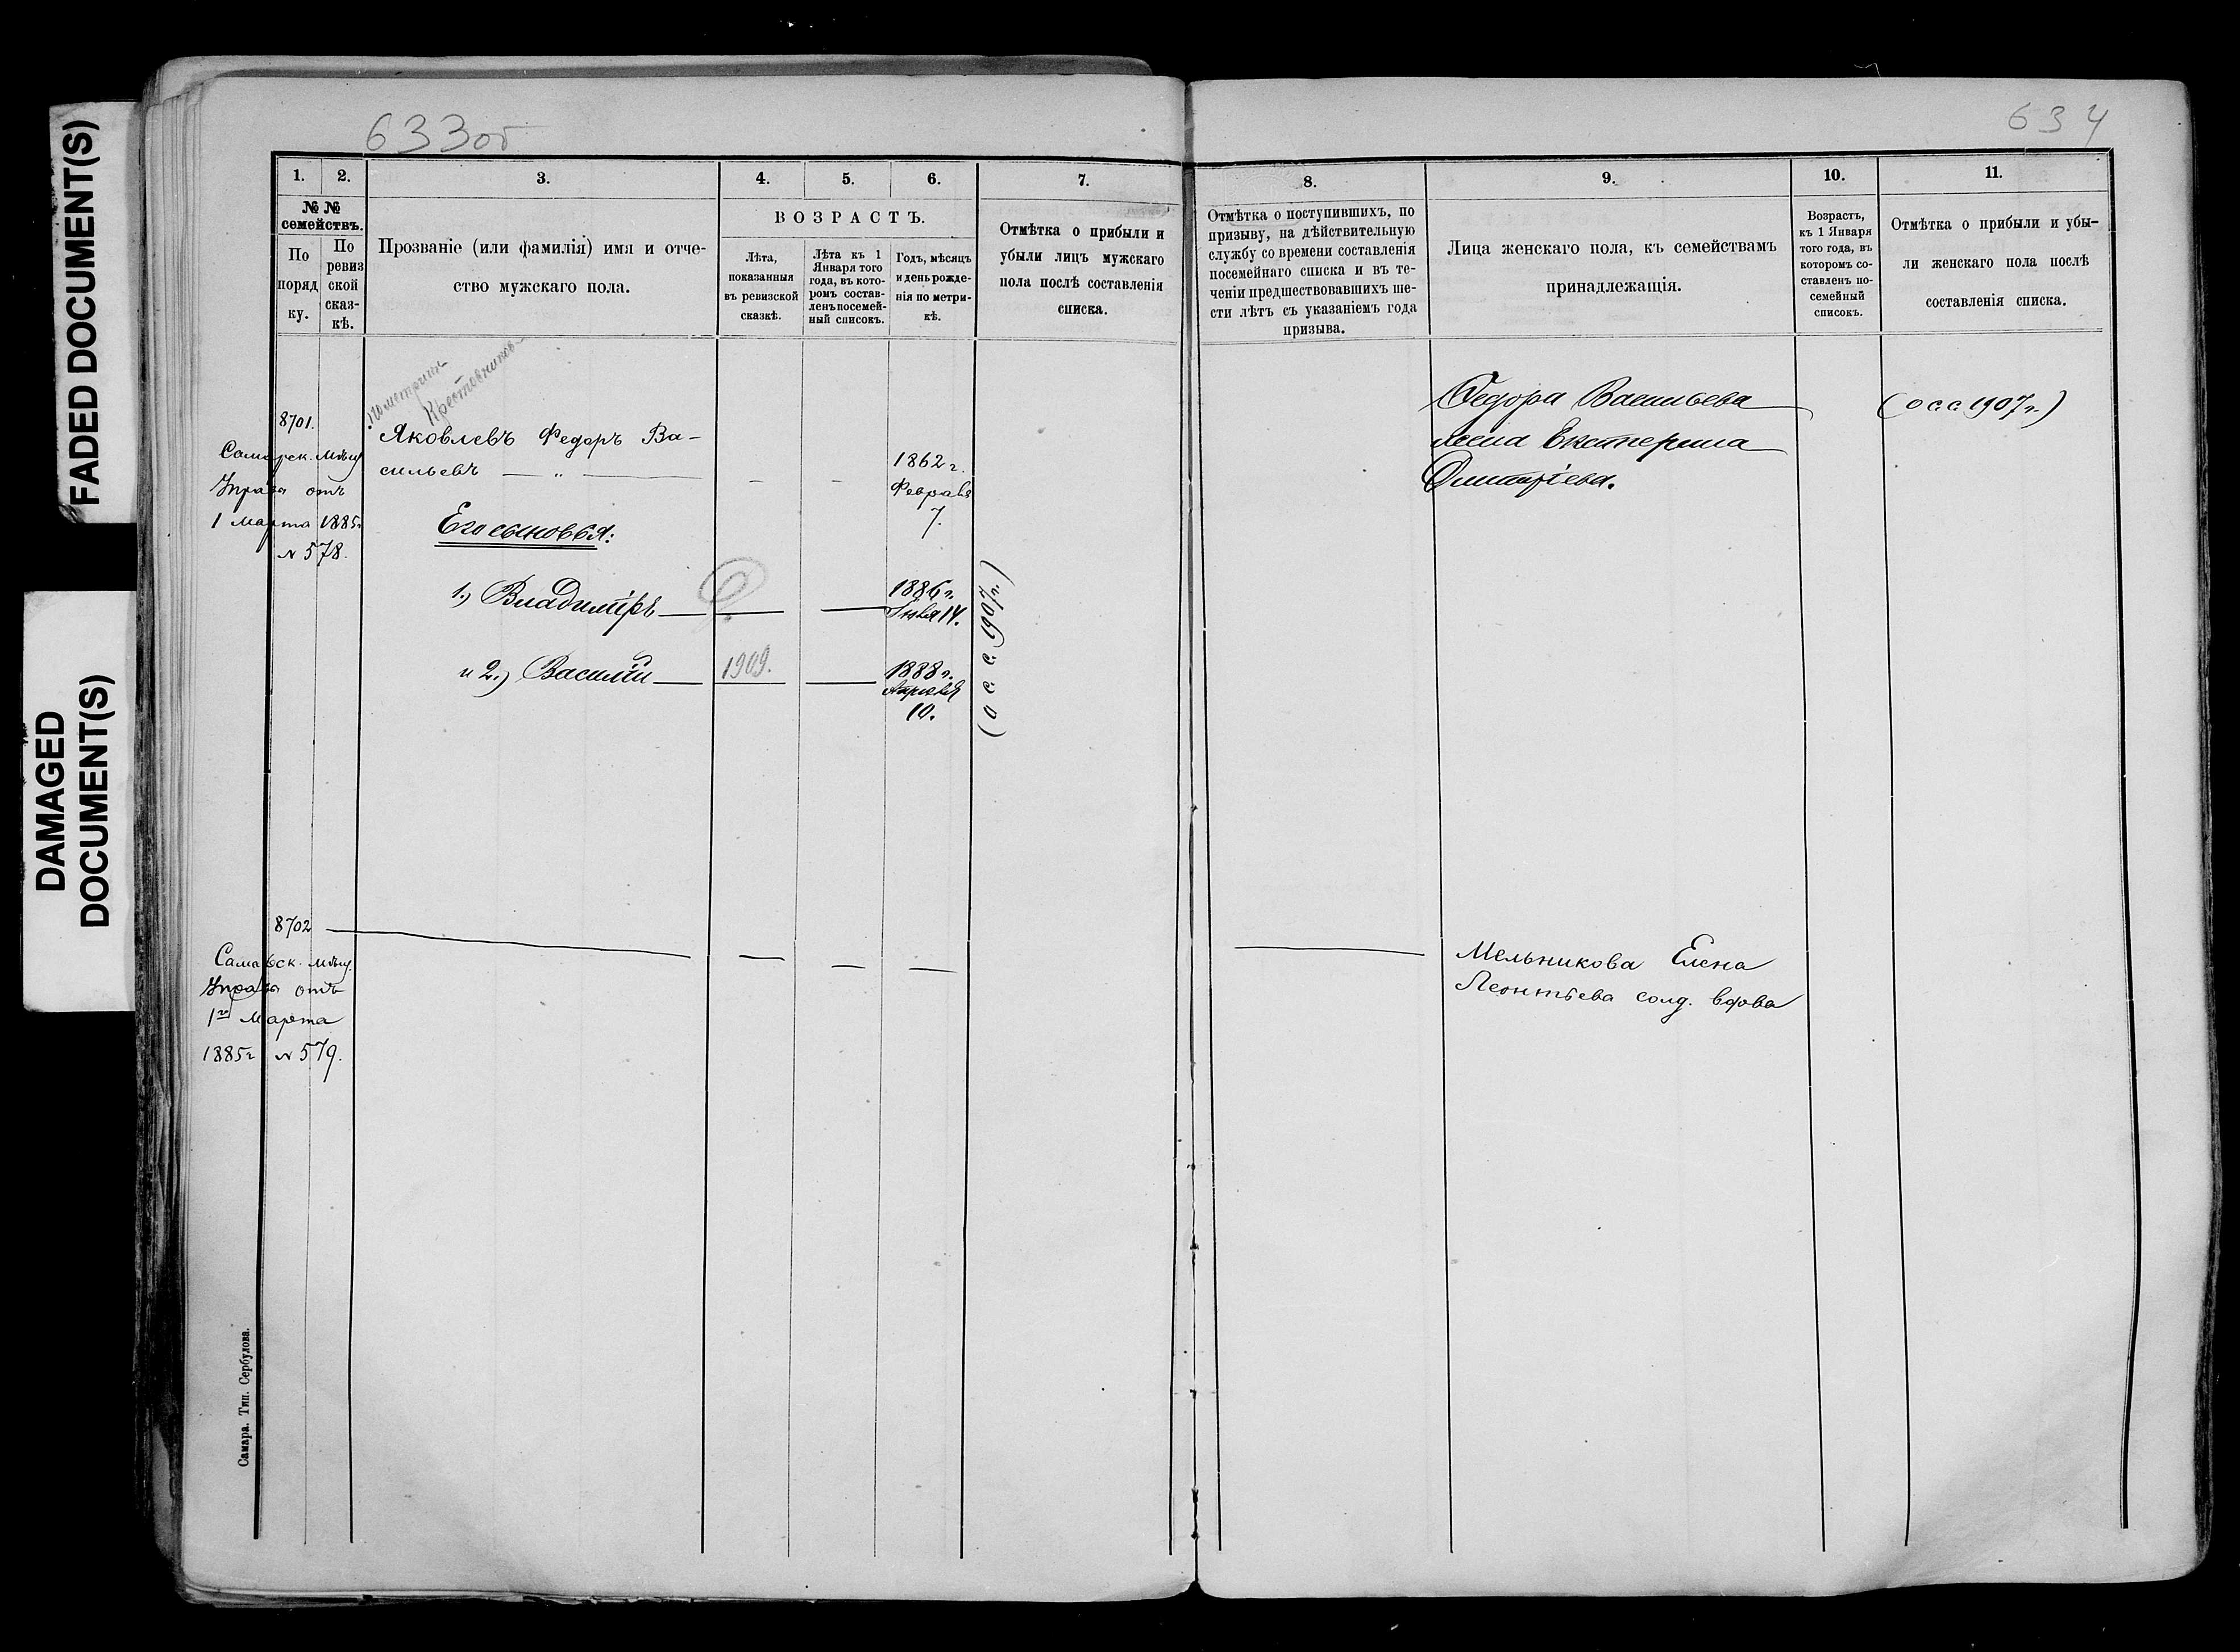 FADED DOCUMENT(S)
DAMAGED
DOCUMENT(S)
633об
634
1.
2.
3.
4.
5.
6.
7.
8.
9.
10.
11.
№ №
семействъ.
По
поряд
ку.
По
ревиз
ской
сказ-
кѣ.
Прозваніе (или фамилія) имя и отче-
ство мужскаго пола.
ВОЗРАСТЪ.
Лѣта,
показанныя
въ ревизской
сказкѣ.
Лѣта къ 1
Января того
года, въ кото-
ромъ состав-
ленъ посемей-
ный списокъ.
Годъ, мѣсяцъ
и день рожде-
нія по метри-
кѣ.
Отмѣтка о прибыли и
убыли лицъ мужскаго
пола послѣ составленія
списка.
Отмѣтка о поступившихъ, по
призыву, на дѣйствительную
службу со времени составленія
посемейнаго списка и въ те-
ченіи предшествовавшихъ ше-
сти лѣтъ съ указаніемъ года
призыва.
Лица женскаго пола, къ семействамъ
принадлежащія.
Возрастъ,
къ 1 Января
того года, въ
которомъ со-
ставленъ по-
семейный
списокъ.
Отмѣтка о прибыли и убы-
ли женскаго пола послѣ
составленія списка.
8701.
Самарск. Мѣщ
Управы отъ
1 Марта 1885г
N 578.
Крестовниковъ
Яковлевъ Федоръ Ва-
сильевъ — „ —
- -
1862 г.
Февраля
7.
Его сыновья:
1.) Владиміръ — — —
1886 г.
Іюля 14.
и 2.) Василій — 1909. —
1888 г.
Апрѣля
10.
(о с. с. 1907 г.)
Федора Васильева
жена Екатерина
Димитріева.
(о с с 1907 г.)
8702
Самарск. Мѣщ.
Управы отъ
1го Марта
1885 г N 579.
Мельникова Елена
Леонтьева солд. вдова
Самара. Тип. Сербулова.